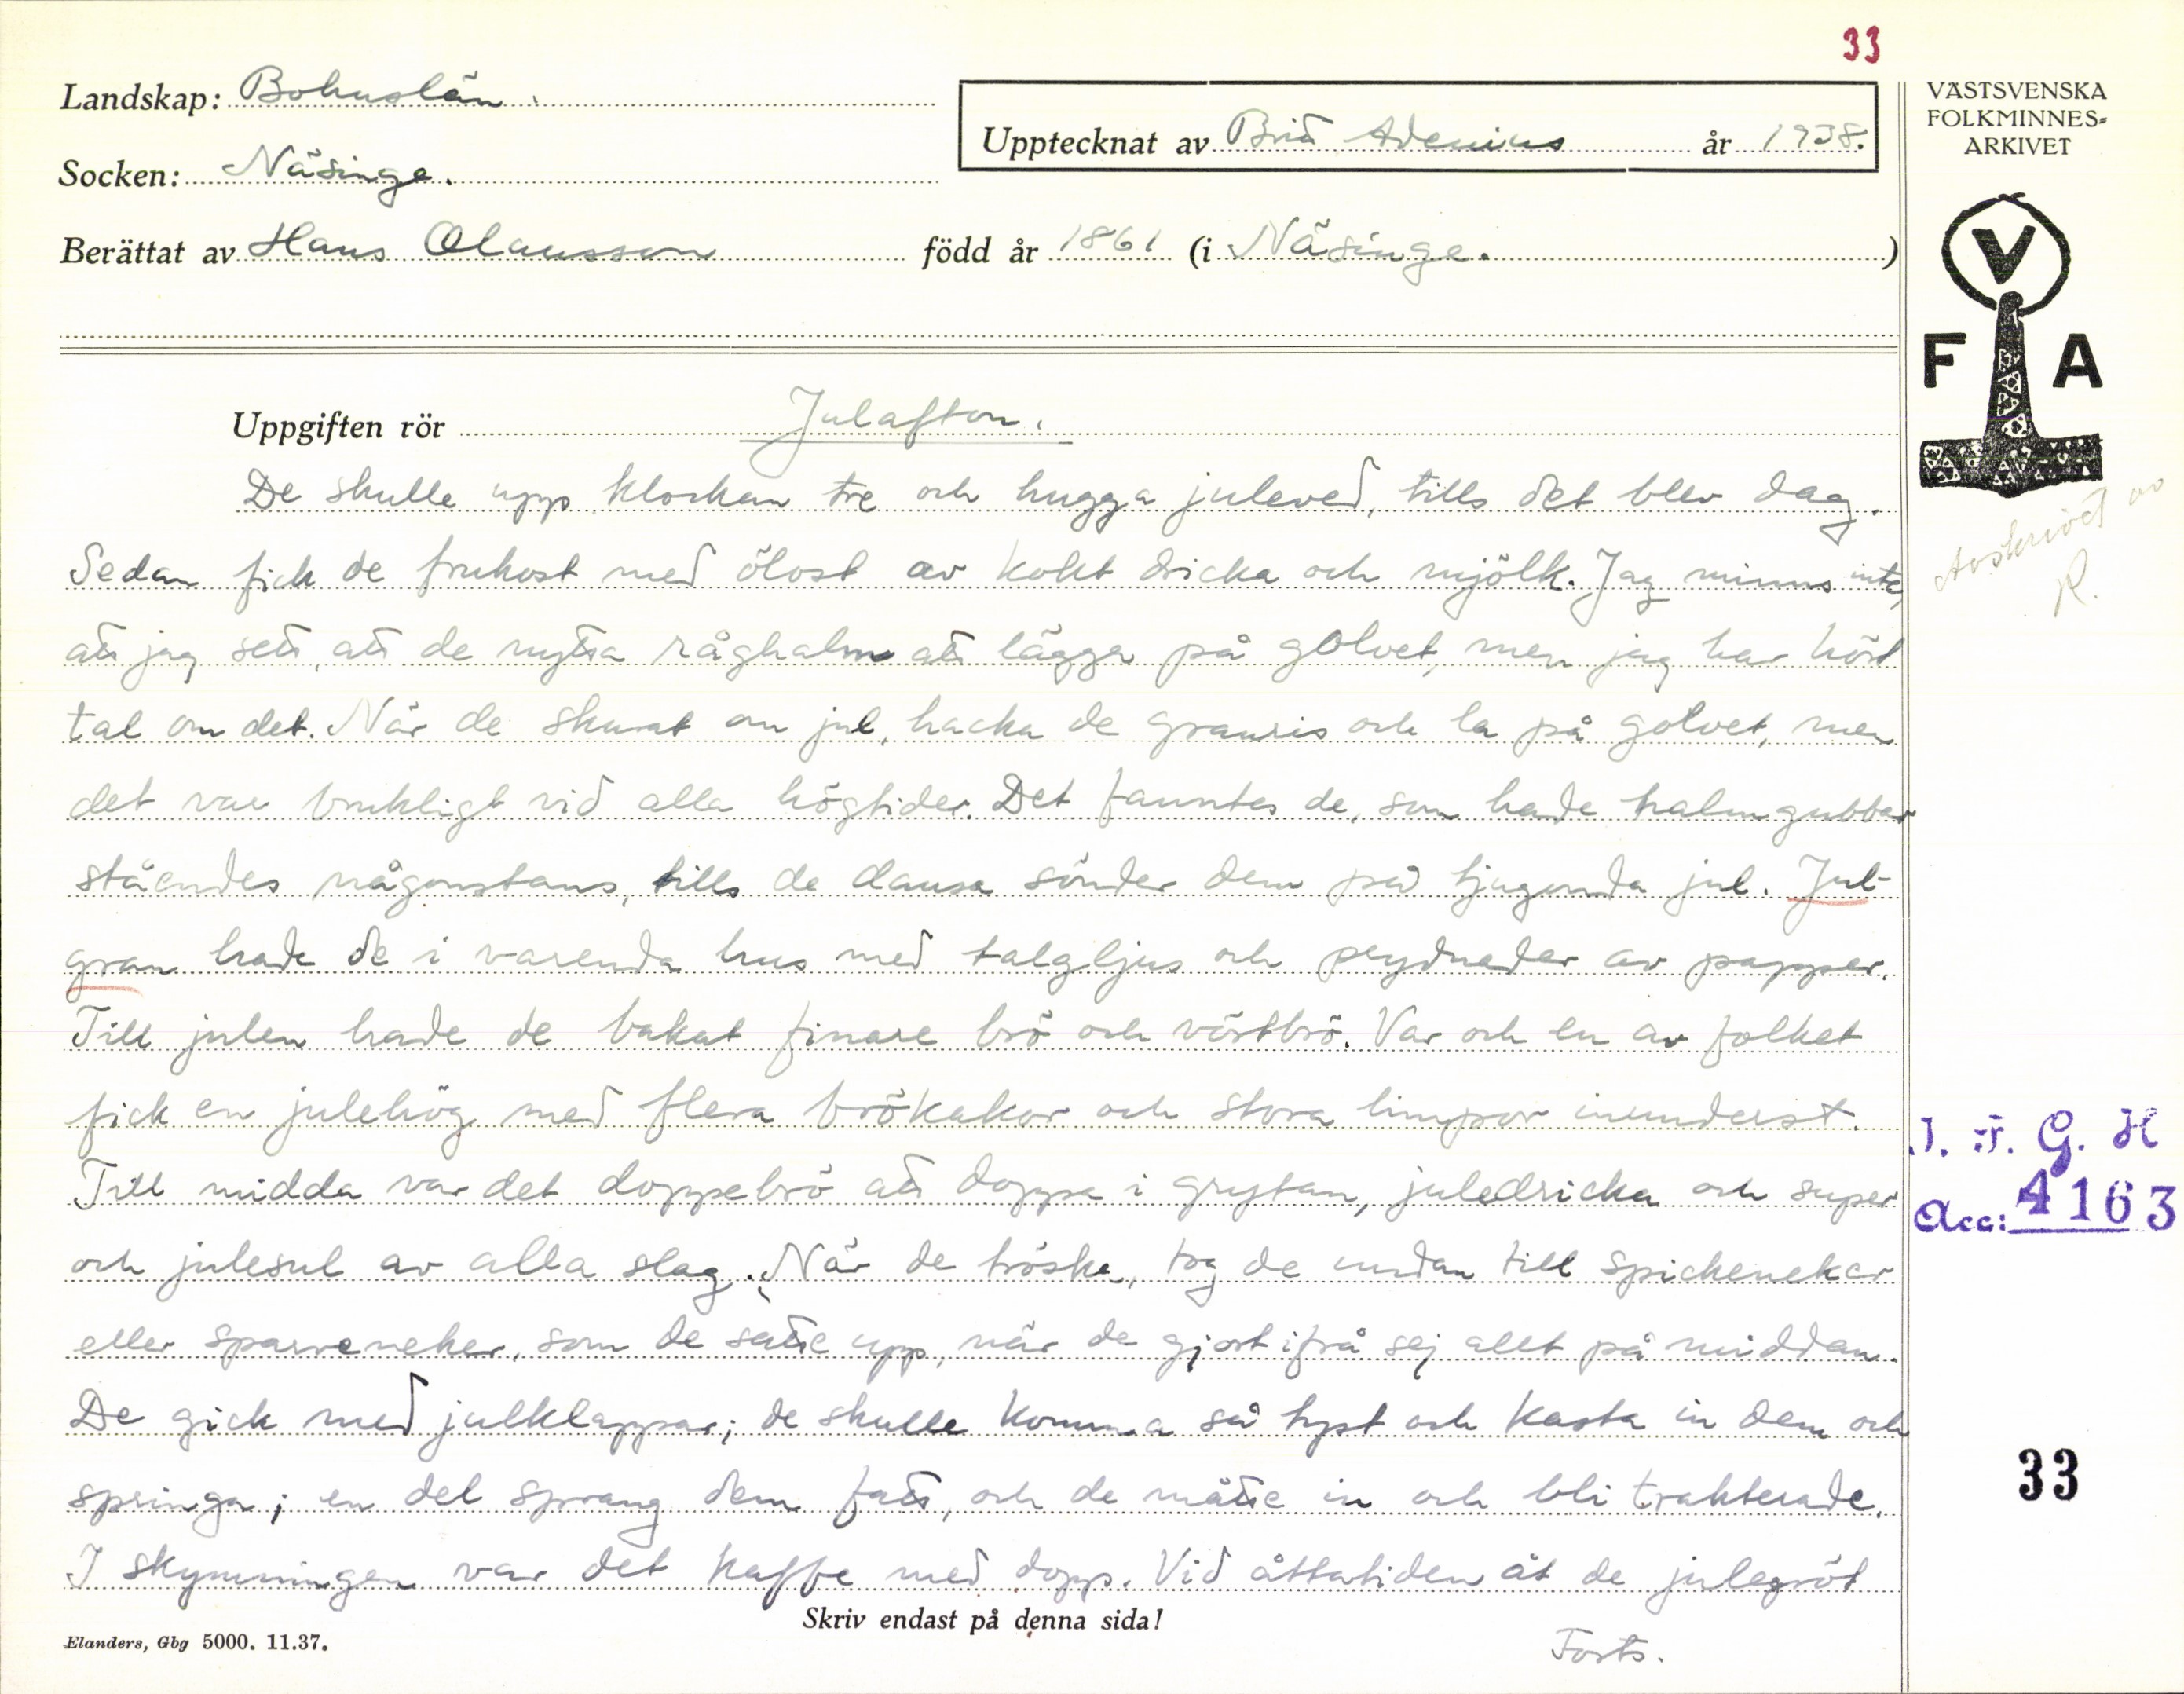 33
Landskap: Bohuslän.
Upptecknat av Brita Adenius år 1938.
Socken: Näsinge.
Berättat av Hans Olausson född år 1861 (i Näsinge.)
VÄSTSVENSKA
FOLKMINNES-
ARKIVET
V
F A
Uppgiften rör Julafton.
De skulle upp klockan tre och hugga juleved, tills det blev dag.
Sedan fick de frukost med ölost av kokt dricka och mjölk. Jag minns inte,
att jag sett, att de nytta råghalm att lägga på golvet, men jag har hört
tal om det. När de skurat om jul, hacka de granris och la på golvet, men
det var brukligt vid alla högtider. Det fanntes de, som hade halmgubbar
ståendes någonstans, tills de dansa sönder dem på tjugonda jul. Jul-
gran hade de i varenda hus med talgljus och prydnader av papper.
Till julen hade de bakat finare brö och vörtbrö. Var och en av folket
fick en julehög med flera brökakor och stora limpor inunderst.
Till midda var det doppebrö att doppa i grytan, juledricka och super
och julesul av alla slag. När de tröska, tog de undan till spickeneker
eller sparveneker, som de satte upp, när de gjort ifrå sej allt på middan.
De gick med julklappar; de skulle komma så tyst och kasta in dem och
springa; en del sprang dem fatt, och de måtte in och bli trakterade.
I skymningen var det kaffe med dopp. Vid åttatiden åt de julegröt
Forts.
Skriv endast på denna sida!
Elanders, Gbg 5000. 11.37.
Avskrivet av
R.
I. F. G. H
Acc: 4163
33